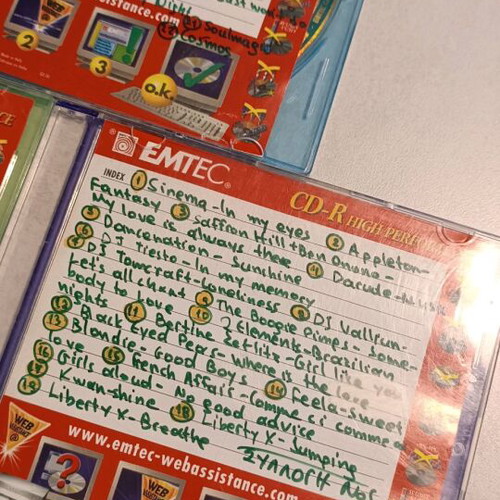 Night
assistance.com
⑪ Soulmagic
⑫ Cosmos
2
3
o.k.
EMTEC
INDEX
CD-R HIGH PERFORM
① Sinema-In my eyes ② Appleton-
Fantasy ③ Saffron Hill + Ben Onono-
My love is always there ④ Darude-Music
⑤ Damonation - Sunchine
⑥ DJ Tiesto - In my memory
DJ Towcraft-Loneliness ⑧ DJ Vallrun-
Let's all chant ⑨ The Boogie Pimps - Some-
body to love ⑩ 2 Elements-Brazilian
nights ⑪ Bertine Zetlitz-Girl like you
⑫ Black Eyed Peas- Where is the love
⑬ Blondie-Good Boys ⑭ Feela-Sweet
love ⑮ French Affair-Comme ci comme ca
⑯ Girls aloud- No good advice
Kwan-shine ⑱ Liberty X- Jumping
Liberty X-Breathe
ΣΥΛΛΟΓΗ Νο5
WEB
www.emtec-webassistance.com